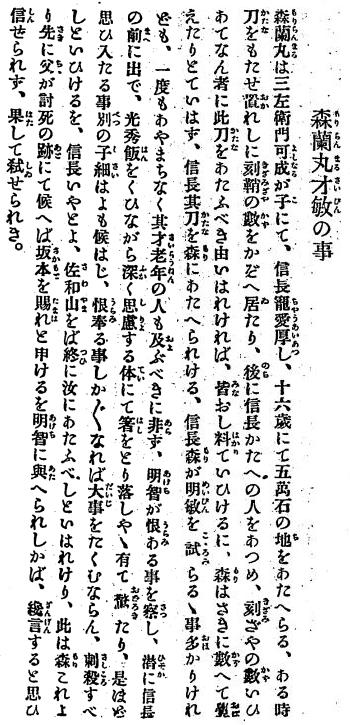 森蘭丸才敏の事
森蘭丸は三左衞門可成が子にて、信長寵愛厚し、十六歳にて五萬石の地をあたへらる、ある時
刀をもたせ置れしに刻鞘の數をかぞへ居たり、後に信長かたへの人をあつめ、刻ざやの數いひ
あてなん者に此刀をあたふべき由いはれければ、皆おし料ていひけるに、森はさきに數へて覺
えたりとていはず、信長其刀を森にあたへられける、信長森が明敏を試らるゝ事多かりけれ
ども、一度もあやまちなく其才老年の人も及ぶべきに非ず、明智が恨ある事を察し、潜に信長
の前に出で、光秀飯をくひながら深く思慮する体にて箸をとり落しやゝ有て驚たり、是ほど
思ひ入たる事別の子細はよも候はじ、恨奉る事しか〴〵なれば大事をたくむならん、刺殺すべ
しといひけるを、信長いやとよ、佐和山をば終に汝にあたふべしといはれけり、此は森これよ
り先に父が討死の跡にて候へば坂本を賜れと申けるを明智に與へられしかば、讒言すると思ひ
信せられず、果して弑せられき。